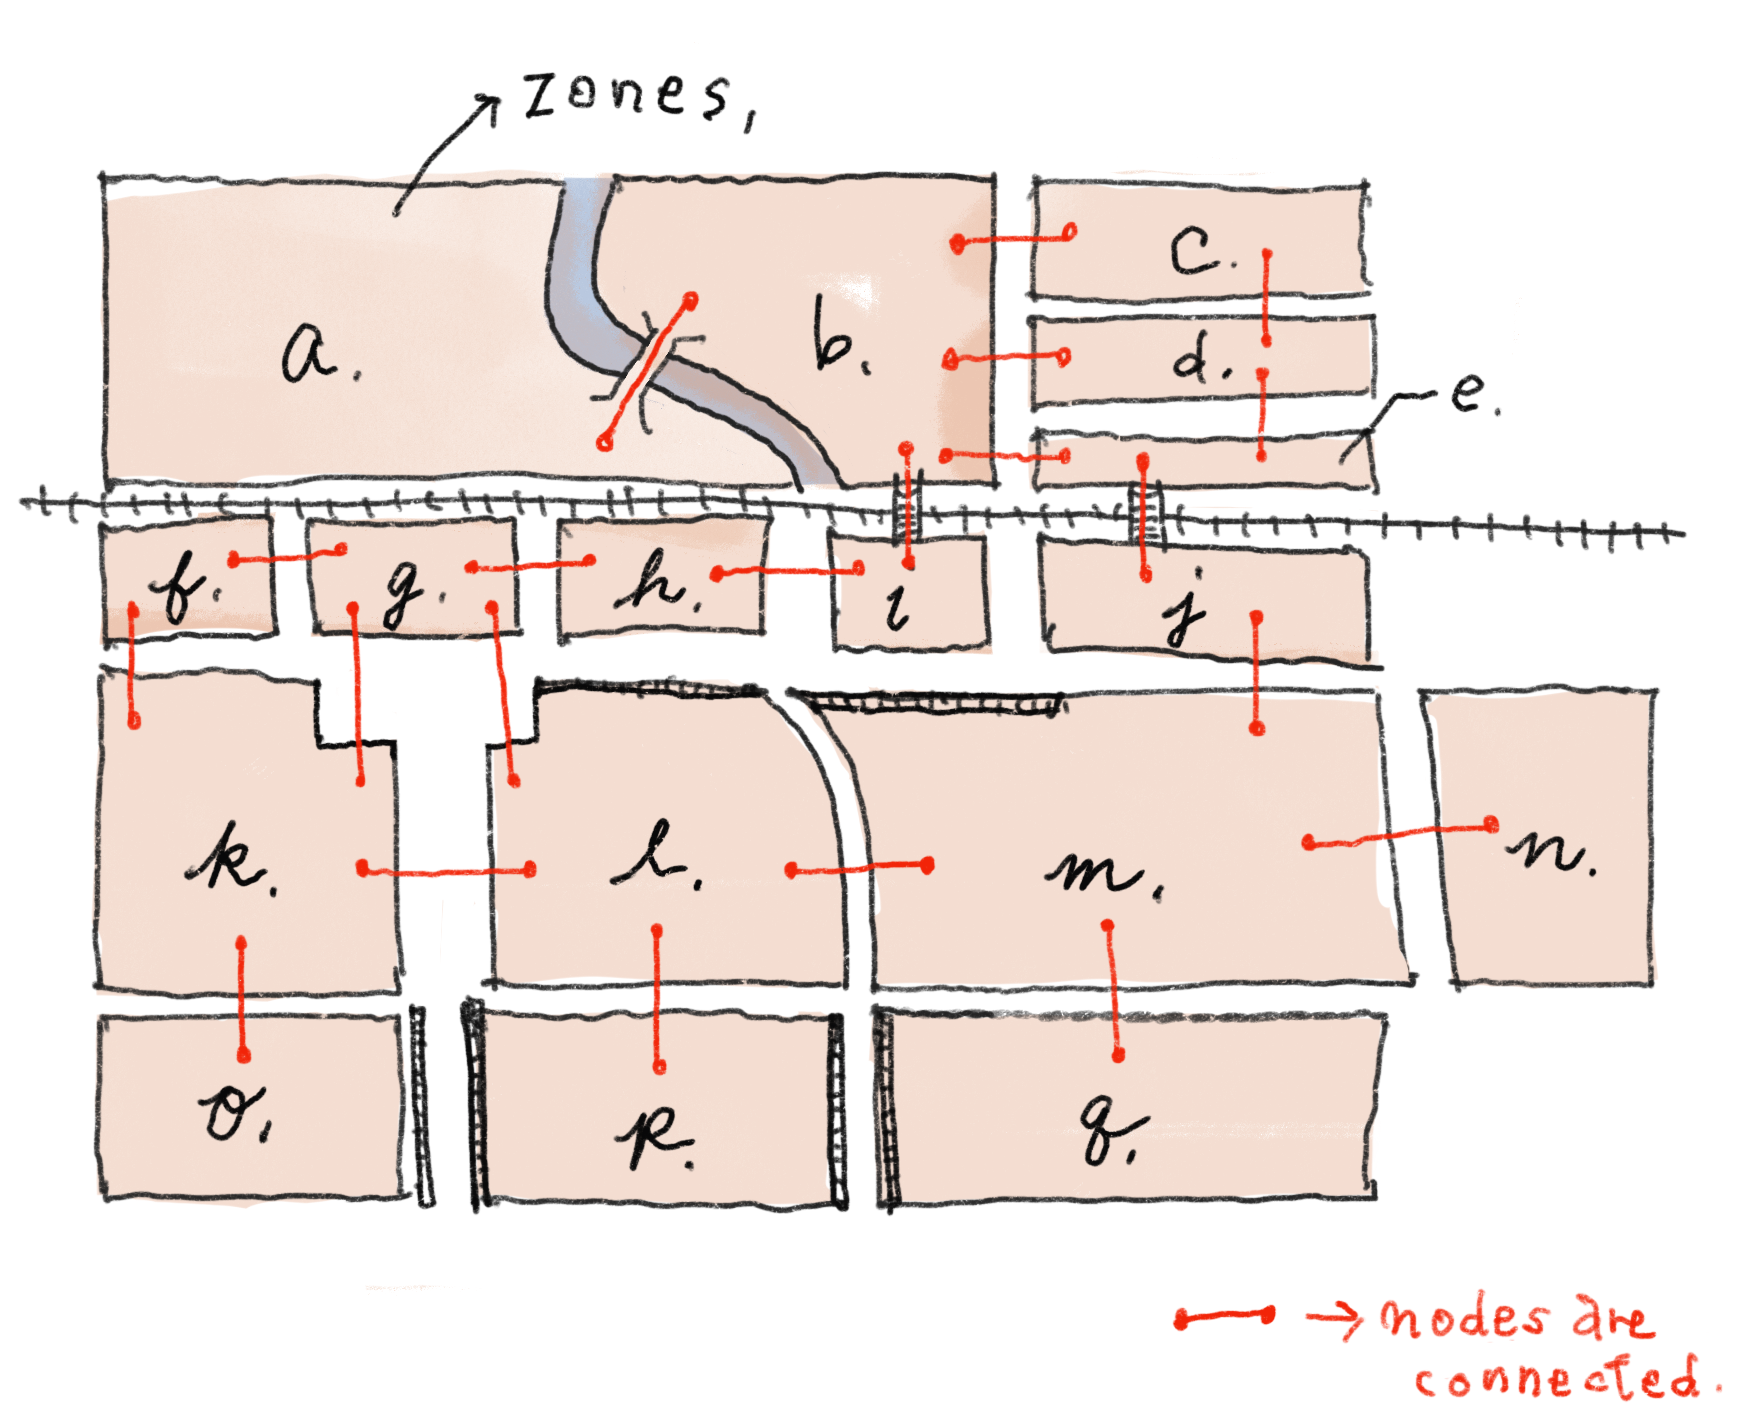 zones,
a.
b.
c.
d.
e.
f.
g.
h.
i
j
k.
l.
m.
n.
o.
p.
q.
nodes are
connected.